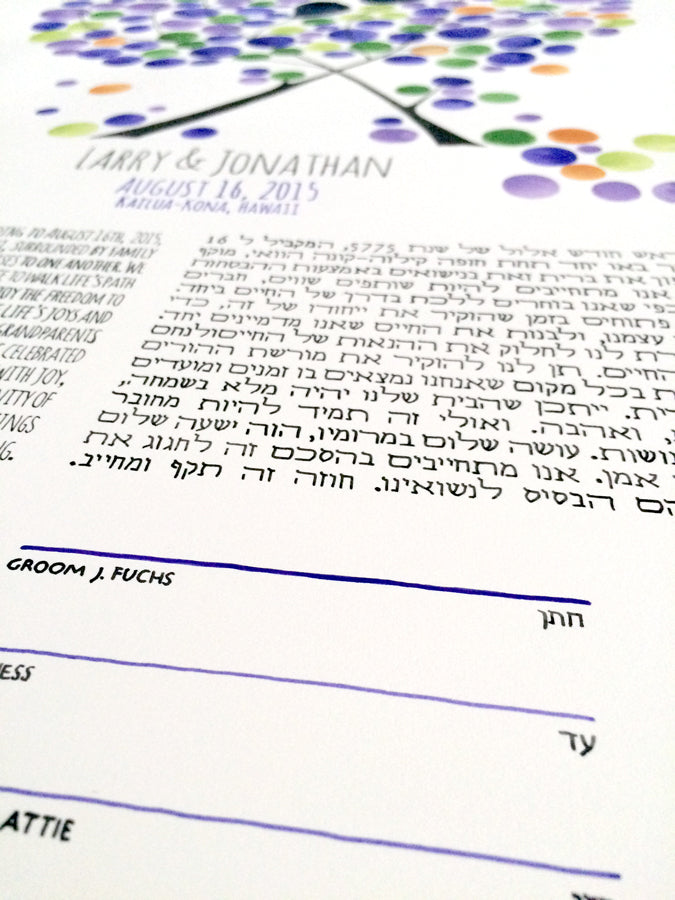 LARRY & JONATHAN
AUGUST 16, 2015
KAILUA-KONA, HAWAII
DING TO AUGUST 16TH, 2015,
SURROUNDED BY FAMILY
SES TO ONE ANOTHER. WE
E TO WALK LIFE'S PATH
JOY THE FREEDOM TO
LIFE'S JOYS AND
GRANDPARENTS
CELEBRATED
WITH JOY,
VITY OF
INGS
G.
ראש חודש אלול של שנת 5775, המקביל ל 16
באו יחד תחת חופה קילוה-קונה הוואי, מוקף
ון את ברית זאת בנישואים באמצעות ההבטחות
אנו מתחייבים להיות שותפים שווים, חברים
כפי שאנו בוחרים ללכת בדרך של החיים ביחד.
פתוחים בזמן שהוקיר את ייחודו של זה, כדי
עצמנו, ולבנות את החיים שאנו מדמיינים יחד.
רת לנו לחלוק את ההנאות של החייםולנחם
החיים. תן לנו להוקיר את מורשת ההורים
ת בכל מקום שאנחנו נמצאים בו זמנים ומועדים
רית. ייתכן שהבית שלנו יהיה מלא בשמחה,
, ואהבה. ואולי זה תמיד להיות מחובר
ושות. עושה שלום במרומיו, הוה ישעה שלום
אמן. אנו מתחייבים בהסכם זה לחגוג את
הם הבסיס לנשואינו. חוזה זה תקף ומחייב.
GROOM J. FUCHS
חתן
ESS
עד
ATTIE